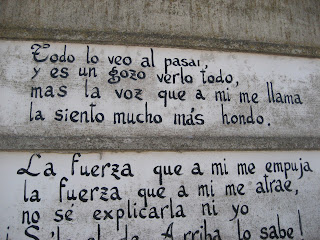 Todo lo veo al pasar,
y es un gozo verlo todo,
mas la voz que a mi me llama
la siento mucho más hondo.
La fuerza que a mi me empuja
la fuerza que a mi me atrae,
no sé explicarla ni yo
el de Arriba lo sabe!